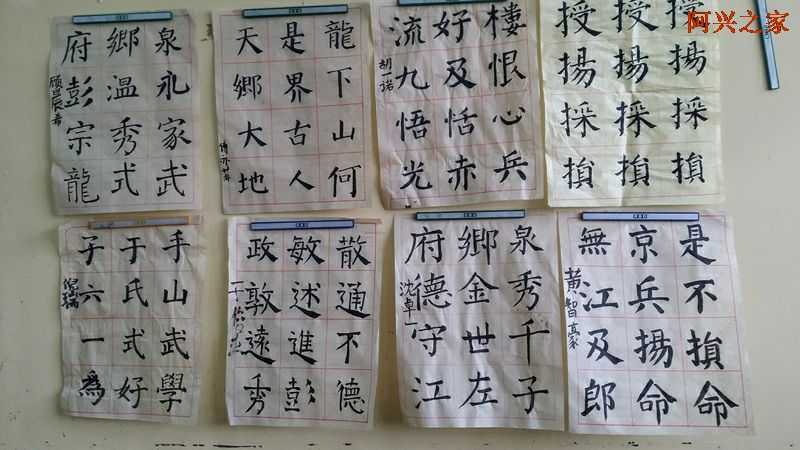 阿兴之家
泉永家武
鄉温秀式
府彭宗龍
龍下山何
是界古人
天鄉大地
樓恨心兵
好及恬赤
流九悟光
胡一诺
授揚採損
授揚採損
授揚採損
手山武學
于氏式好
子六一為
散通不德
敏述進彭
政敦遠秀
泉秀千子
鄉金世左
府德守江
沈卓一
是不損命
京兵揚命
無江及郎
黄智豪